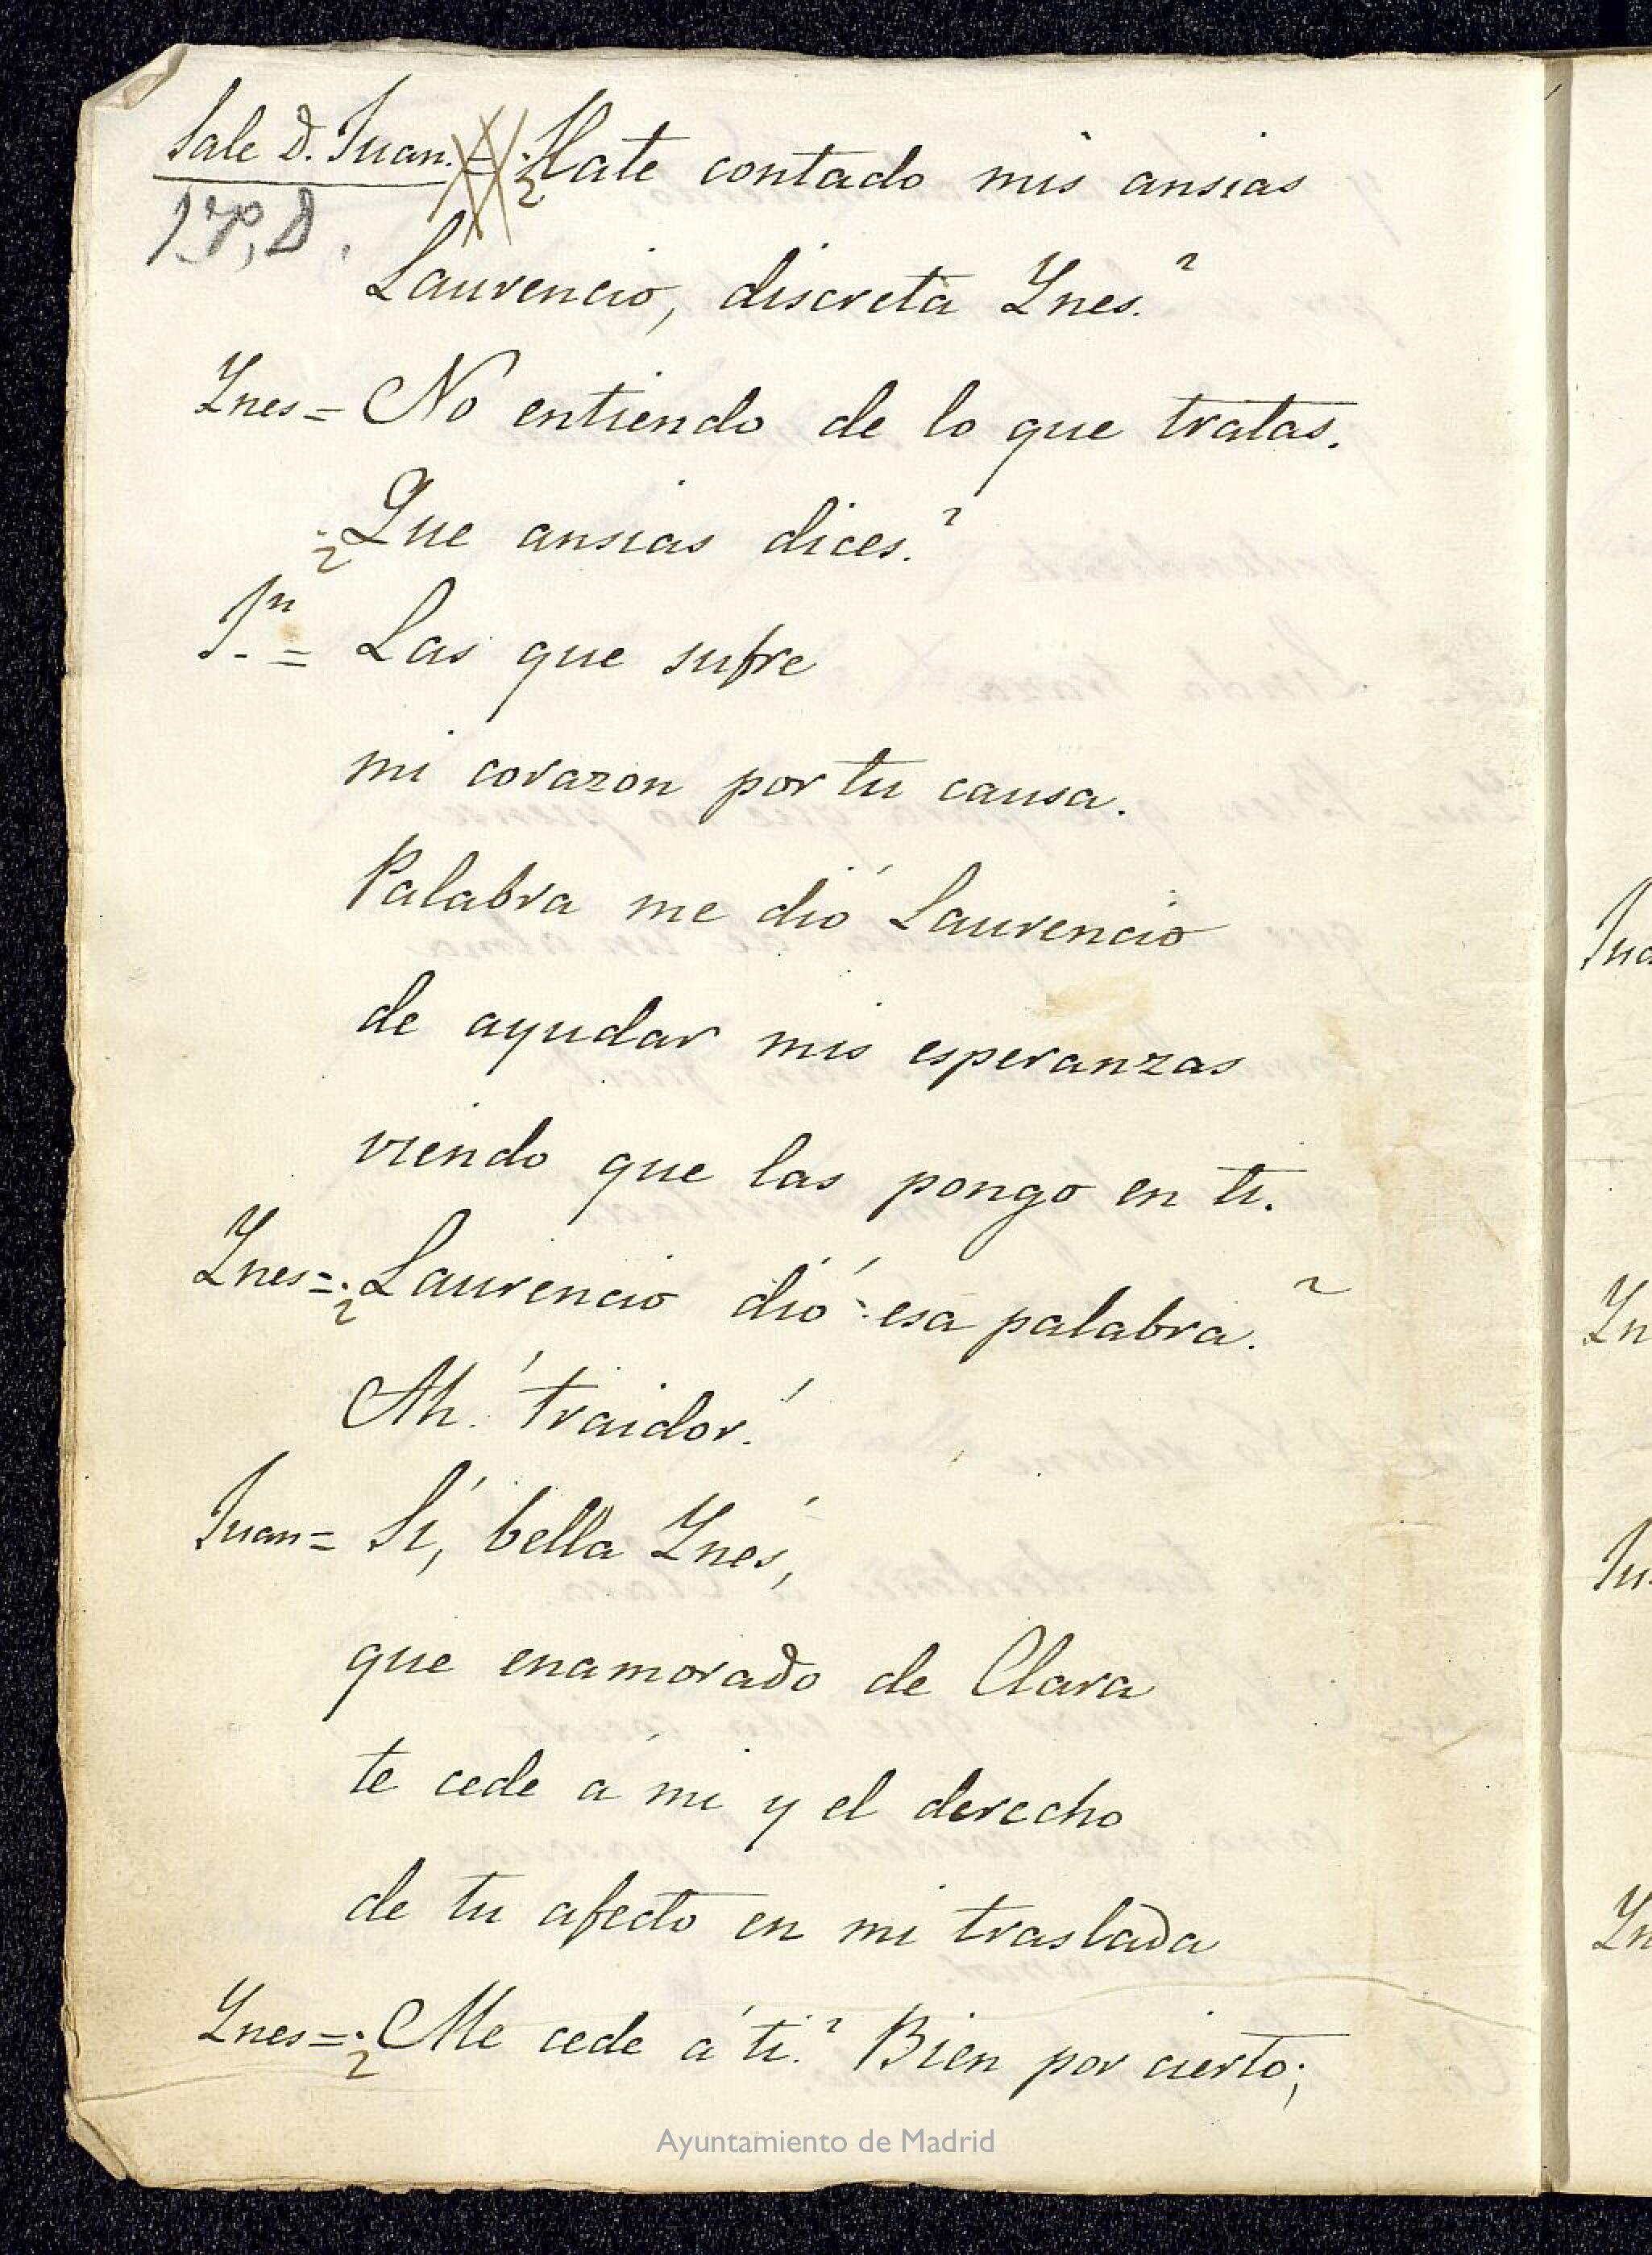 Sale D. Juan. = ¿Hate contado mis ansias
1.º P, D.
Laurencio, discreta Ynes.?
Ynes = No entiendo de lo que tratas.
¿Que ansias dices.?
Jn = Las que sufre
mi corazon por tu causa.
Palabra me dió Laurencio
de ayudar mis esperanzas
viendo que las pongo en ti.
Ynes = ¿Laurencio dió esa palabra.?
Ah! traidor!
Juan = Sí, bella Ynés,
que enamorado de Clara
te cede á mi y el derecho
de tu afecto en mi traslada
Ynes = ¿Me cede á ti? Bien por cierto;
Jua
Yn
Ju
Yn
Ayuntamiento de Madrid